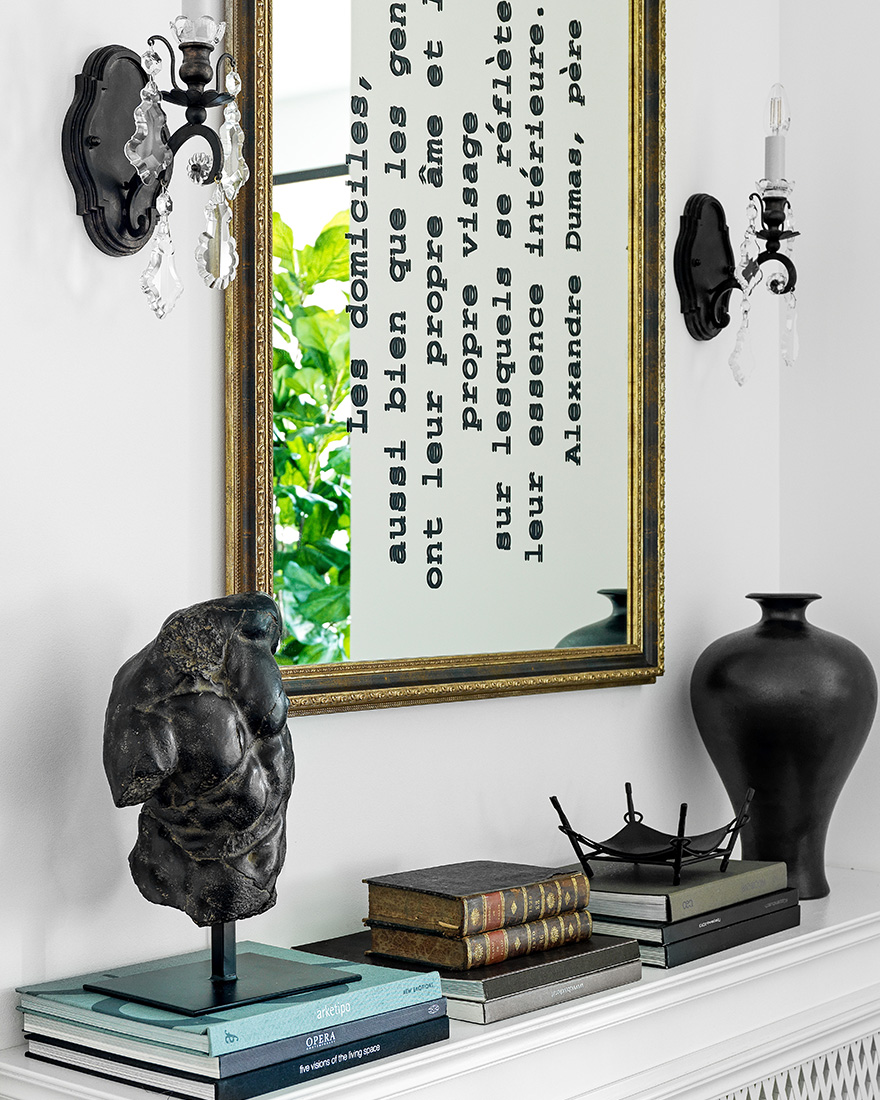 Les domiciles,
aussi bien que les gen
ont leur propre âme et l
propre visage
sur lesquels se réflète
leur essence intérieure.
Alexandre Dumas, père
NEW EMOTIONS
arketipo
OPERA
CONTEMPORARY
five visions of the living space